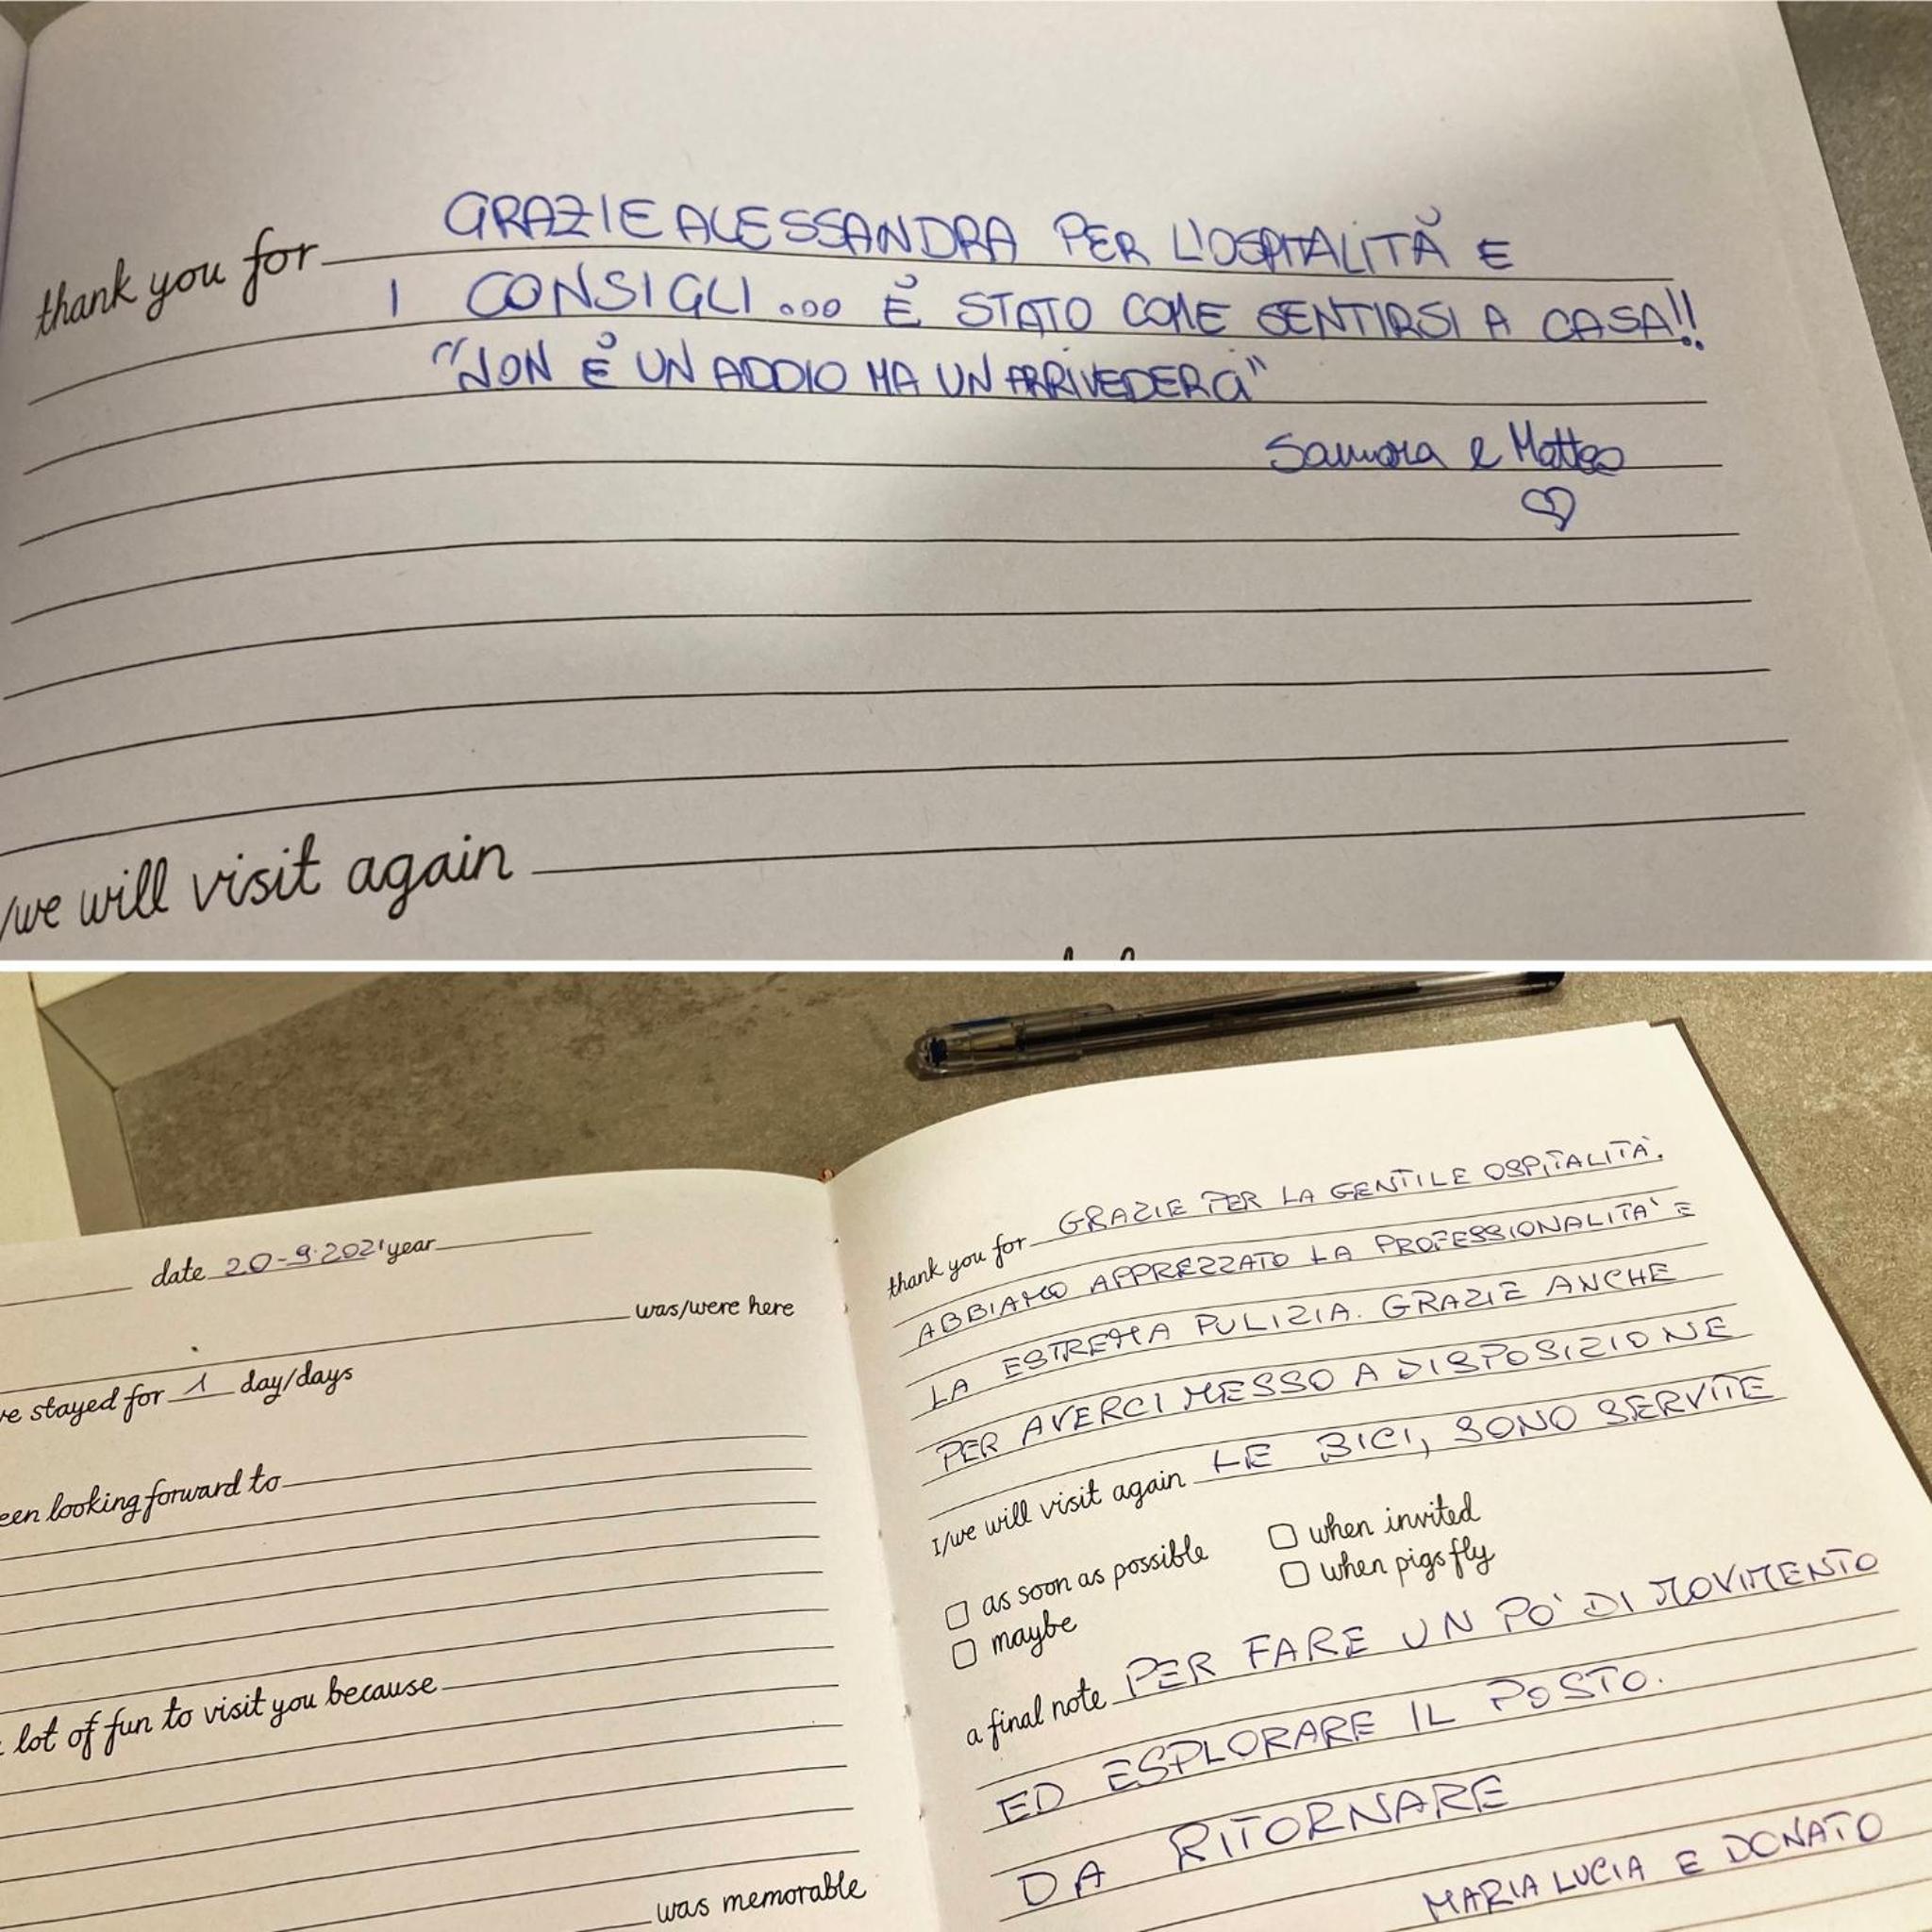 thank you for GRAZIE ALESSANDRA PER L'OSPITALITÀ E
I CONSIGLI... È STATO COME SENTIRSI A CASA!!
"NON È UN ADDIO MA UN ARRIVEDERCI"
e Matteo
/we will visit again
date 20-9-2021 year
was/were here
ve stayed for 1 day/days
een looking forward to
lot of fun to visit you because
was memorable
thank you for GRAZIE PER LA GENTILE OSPITALITÀ.
ABBIAMO APPREZZATO LA PROFESSIONALITA' E
LA ESTREMA PULIZIA. GRAZIE ANCHE
PER AVERCI MESSO A DISPOSIZIONE
I/we will visit again LE BICI, SONO SERVITE
as soon as possible when invited
maybe when pigs fly
a final note PER FARE UN PO' DI MOVIMENTO
ED ESPLORARE IL POSTO.
DA RITORNARE
MARIA LUCIA E DONATO